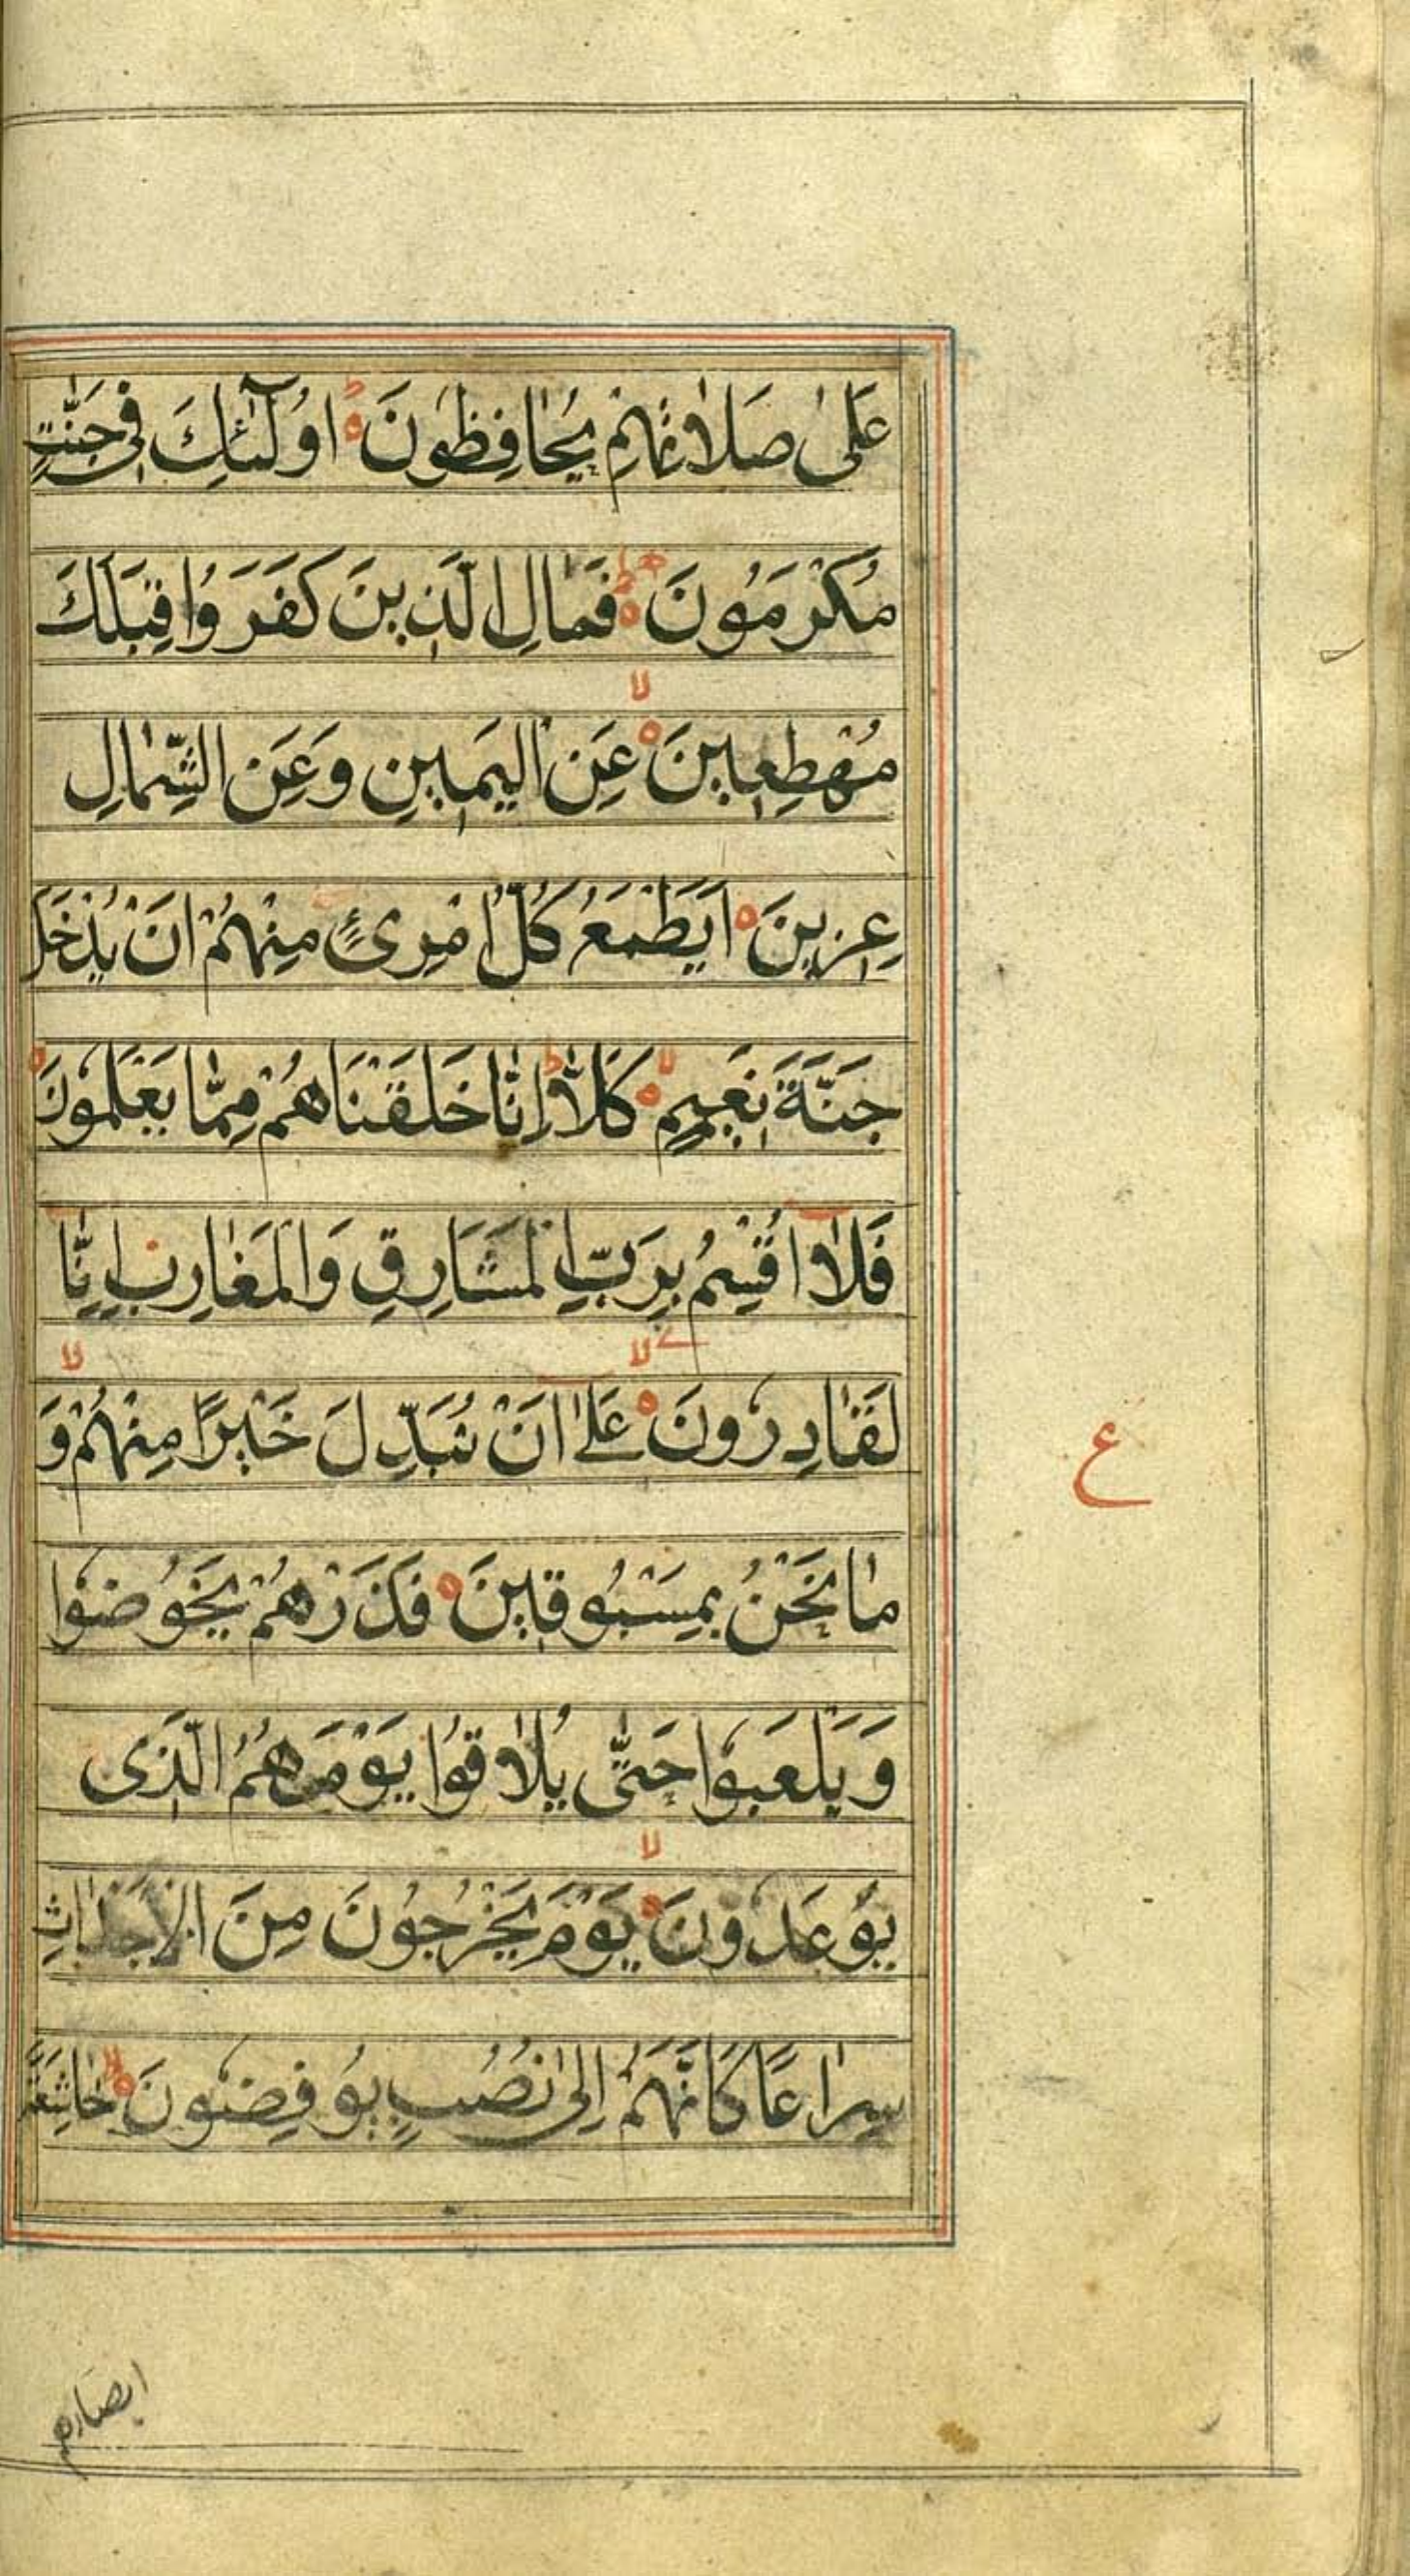 عَلىٰ صَلاٰتِهِمْ يُحٰافِظُونَ ۝ اُولٰٓئِكَ فِى جَنّٰتٍ
مُكْرَمُونَ ۝ فَمٰالِ الَّذِينَ كَفَرَوُا قِبَلَكَ
لا
مُهْطِعِينَ ۝ عَنِ الْيَمِينِ وَعَنِ الشِّمٰالِ
عِزِينَ ۝ اَيَطْمَعُ كُلُّ امْرِئٍ مِنْهُمْ اَنْ يُدْخَلَ
جَنَّةَ نَعِيمٍ ۝ كَلّاٰ اِنّٰا خَلَقْنَاهُمْ مِمّٰا يَعْلَمُونَ ۝
فَلاٰ اُقْسِمُ بِرَبِّ الْمَشَارِقِ وَالْمَغٰارِبِ اِنّٰا
لا لا
لَقٰادِرُونَ ۝ عَلىٰ اَنْ نُبَدِّلَ خَيْرًا مِنْهُمْ وَ
ع
مٰا نَحْنُ بِمَسْبُوقِينَ ۝ فَذَرْهُمْ يَخُوضُوا
وَيَلْعَبُوا حَتّٰى يُلاٰقُوا يَوْمَهُمُ الَّذِى
لا
يُوعَدُونَ ۝ يَوْمَ يَخْرُجُونَ مِنَ الْاَجْدٰاثِ
سِرٰاعًا كَاَنَّهُمْ اِلىٰ نُصُبٍ يُوفِضُونَ ۝ خٰاشِعَةً
ابصارهم